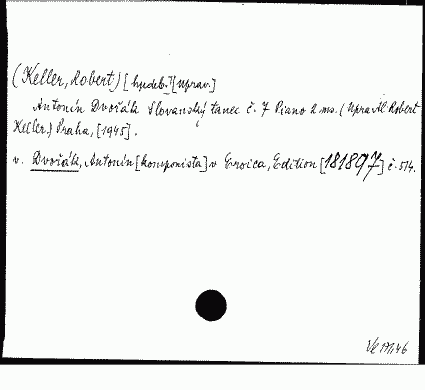 (Keller, Robert) [hudeb.] [Uprav.]
Antonín Dvořák Slovanský tanec č. 7 Piano 2 ms. (Upravil Robert
Keller.) Praha, [1945].
v. Dvořák, Antonín [komponista] v Eroica, Edition [181897] č. 514.